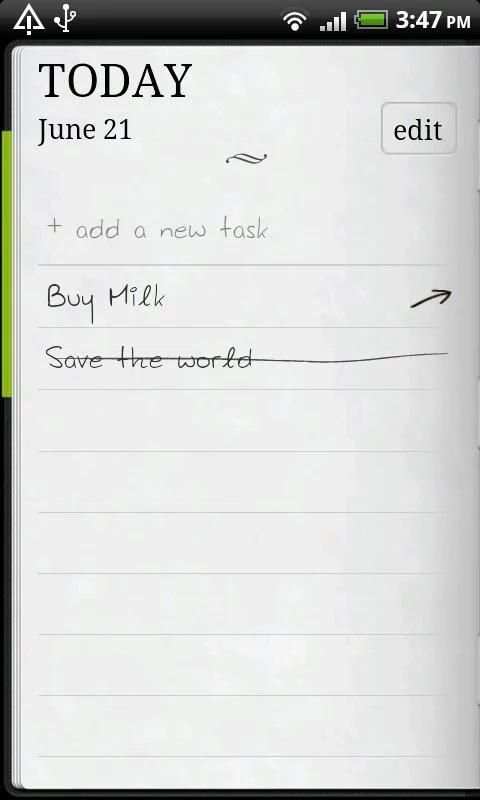 3:47 PM
TODAY
June 21
edit
+ add a new task
Buy Milk
Save the world